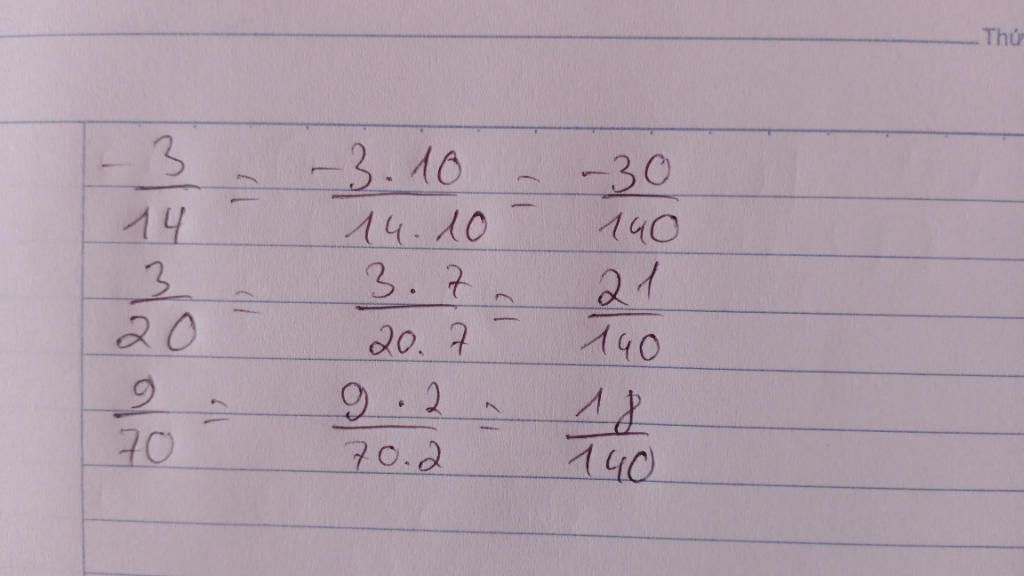 Thứ
-3/14 = -3.10/14.10 = -30/140
3/20 = 3.7/20.7 = 21/140
9/70 = 9.2/70.2 = 18/140